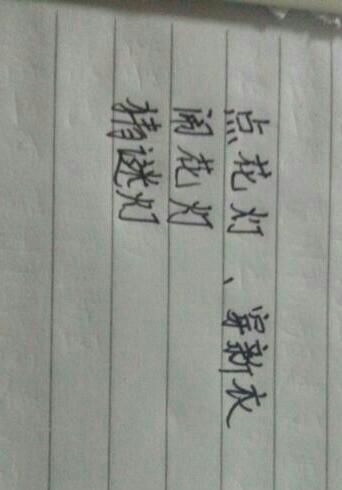 点花灯、穿新衣
闹花灯
猜谜灯